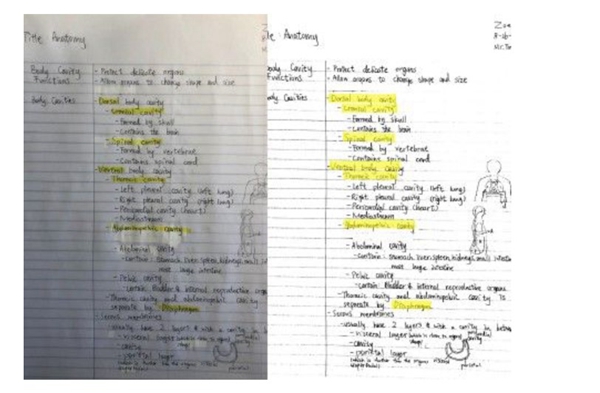 Title Anatomy
Body Cavity Functions
- Protect delicate organs
- Allow organs to change shape and size
Body Cavities
- Dorsal body cavity
- Cranial cavity
- Formed by skull
- Contains the brain
- Spinal cavity
- Formed by vertebrae
- Contains spinal cord
- Ventral body cavity
- Thoracic cavity
- Left pleural cavity (left lung)
- Right pleural cavity (right lung)
- Pericardial cavity (heart)
- Mediastinum
- Abdominopelvic cavity
- Abdominal cavity
- Contain: stomach, liver, spleen, kidneys, small
most large intestine
- Pelvic cavity
- contain Bladder & internal reproductive organs
- Thoracic cavity and abdominopelvic cavity
separate by
- Serous membranes
- usually have 2 layers & with a cavity
- visceral layer
- cavity
- parietal layer
le Anatomy
Zoe
ody Cavity
Functions
- Protect delicate organs
- Allow organs to change shape and size
ody Cavities
- Dorsal body cavity
- Cranial cavity
- Formed by skull
- Contains the brain
- Spinal cavity
- Formed by vertebrae
- Contains spinal cord
- Ventral body cavity
- Thoracic cavity
- Left pleural cavity (left lung)
- Right pleural cavity (right lung)
- Pericardial cavity (heart)
- Mediastinum
- Abdominopelvic cavity
- Abdominal cavity
- contain: stomach, liver, spleen, kidneys, small
most large intestine
- Pelvic cavity
- contain Bladder & internal reproductive organs
- Thoracic cavity and abdominopelvic cavity is
separate by Diaphragm
- Serous membranes
- usually have 2 layers & with a cavity in between
- visceral layer
- cavity
- parietal layer